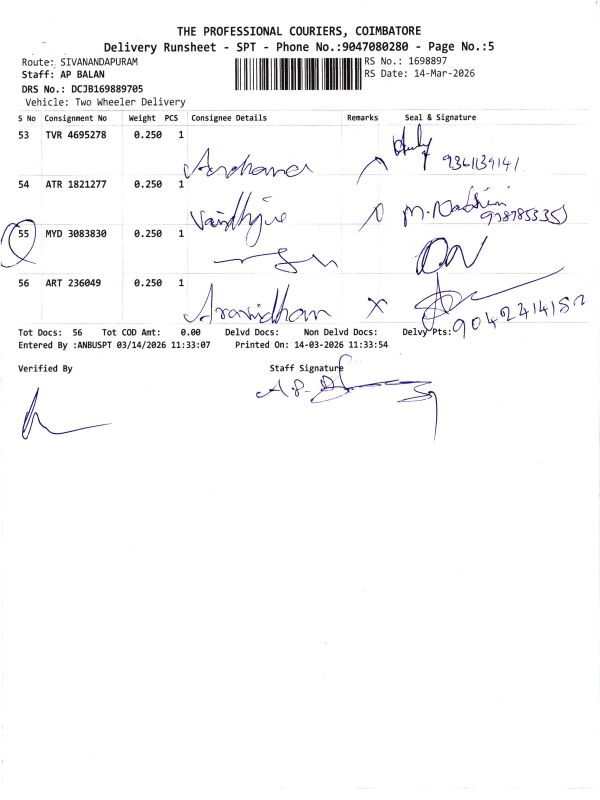 THE PROFESSIONAL COURIERS, COIMBATORE
Delivery Runsheet - SPT - Phone No.:9047080280 - Page No.:5
Route: SIVANANDAPURAM
RS No.: 1698897
Staff: AP BALAN
RS Date: 14-Mar-2026
DRS No.: DCJB169889705
Vehicle: Two Wheeler Delivery
S No Consignment No Weight PCS Consignee Details Remarks Seal & Signature
53 TVR 4695278 0.250 1
Archana
54 ATR 1821277 0.250 1
55 MYD 3083830 0.250 1
56 ART 236049 0.250 1
Aravindhan
Tot Docs: 56 Tot COD Amt: 0.00 Delvd Docs: Non Delvd Docs: Delvy Pts:
Entered By :ANBUSPT 03/14/2026 11:33:07 Printed On: 14-03-2026 11:33:54
Verified By Staff Signature